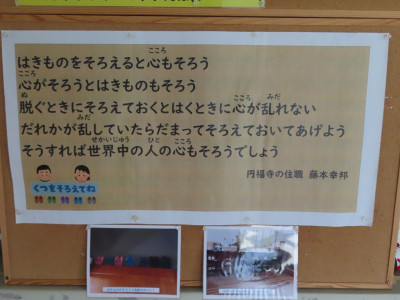 はきものをそろえると心もそろう
心がそろうとはきものもそろう
脱ぐときにそろえておくとはくときに心が乱れない
だれかが乱していたらだまってそろえておいてあげよう
そうすれば世界中の人の心もそろうでしょう
円福寺の住職 藤本幸邦
くつをそろえてね